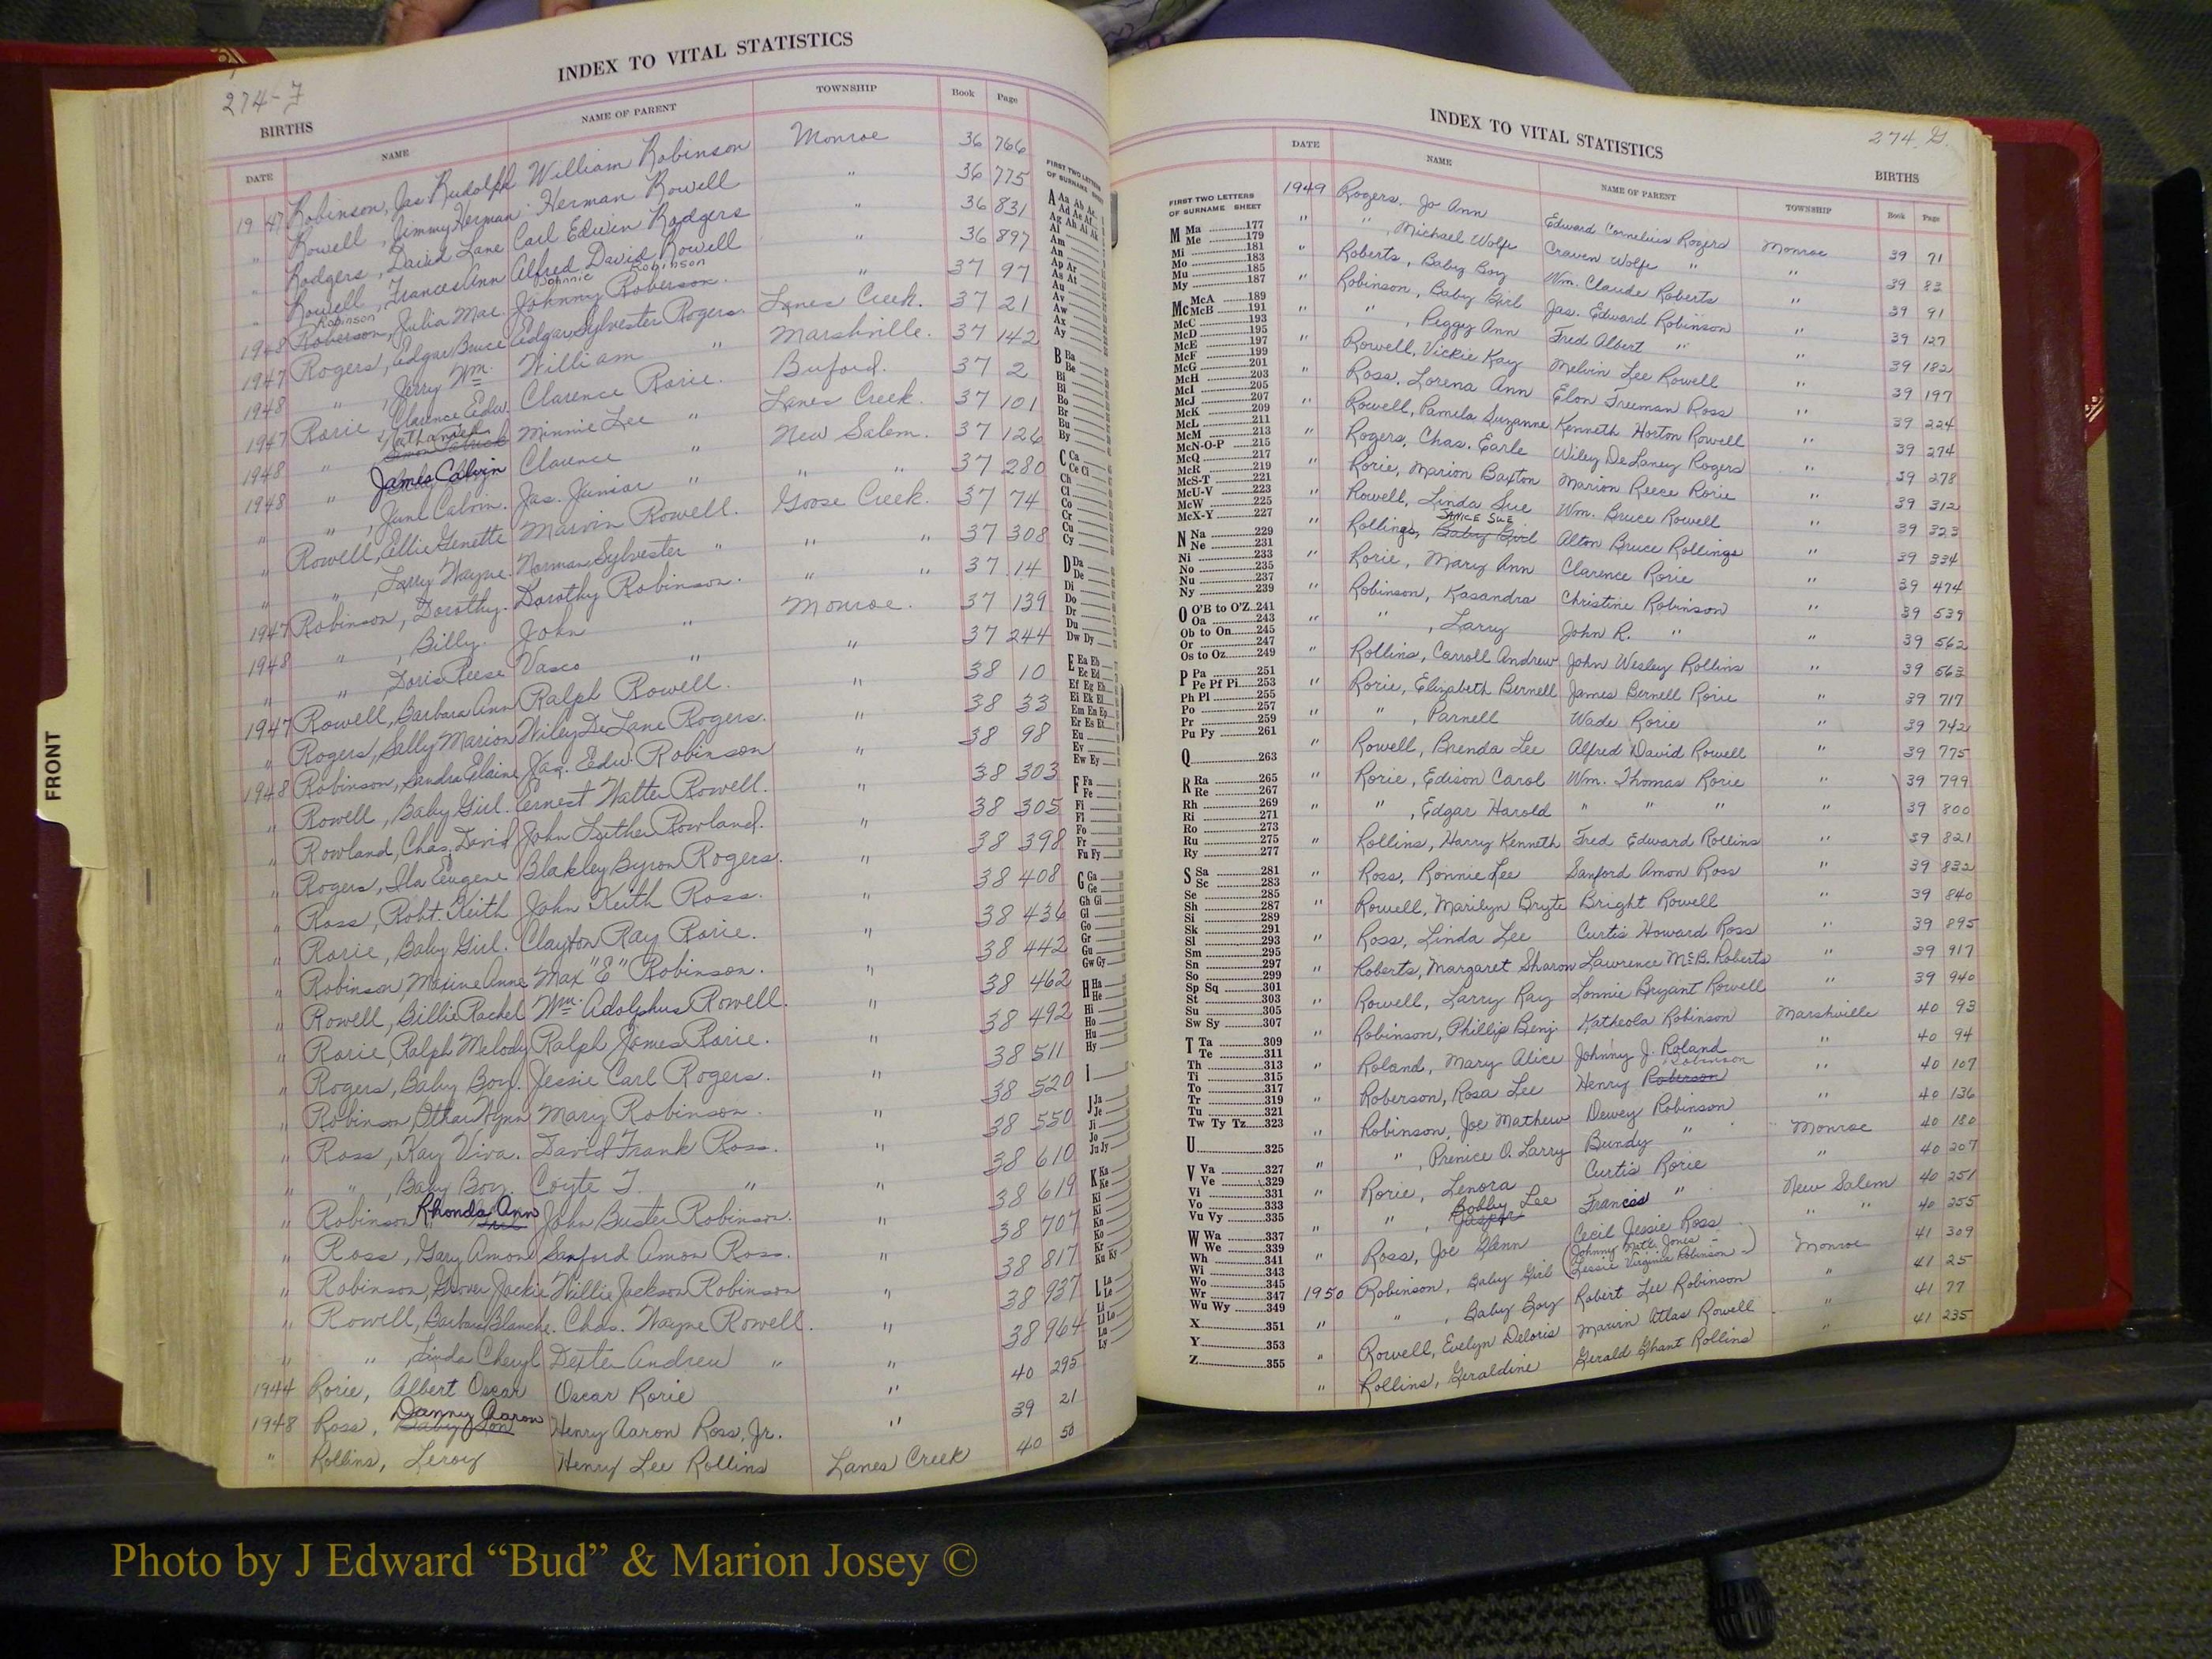 274-F
INDEX TO VITAL STATISTICS
BIRTHS
DATE NAME NAME OF PARENT TOWNSHIP Book Page
1947 Robinson, Jas Rudolph William Robinson Monroe 36 766
" Rowell, Jimmy Herman Herman Rowell " 36 775
" Rodgers, David Lane Carl Edwin Rodgers " 36 831
" Rowell, Frances Ann Alfred David Rowell " 36 897
Robinson Johnnie Robinson
1948 Roberson, Julia Mae Johnny Roberson. " 37 97
1947 Rogers, Edgar Bruce Edgar Sylvester Rogers. Lanes Creek. 37 21
1948 " , Jerry Wm. William " Marshville. 37 142
1947 Rorie, Clarence Edw. Clarence Rorie. Buford. 37 2
Nathaniel
1948 " Minnie Lee " Lanes Creek. 37 101
1948 " James Calvin Clarence " New Salem. 37 126
" " , June Calvin. Jas. Junior " " " 37 280
" Rowell, Ellie Genette Marvin Rowell. Goose Creek. 37 74
" " , Larry Wayne. Norman Sylvester " " " 37 308
1947 Robinson, Dorothy. Dorothy Robinson. " " 37 14
1948 " , Billy. John " Monroe. 37 139
" " , Doris Reese Vasco " " 37 244
1947 Rowell, Barbara Ann Ralph Rowell. " 38 10
" Rogers, Sally Marion Wiley DeLane Rogers. " 38 33
1948 Robinson, Sandra Elaine Jas. Edw. Robinson " 38 98
" Rowell, Baby Girl. Ernest Walter Rowell. " 38 303
" Rowland, Chas. David John Luther Rowland. " 38 305
" Rogers, Ila Eugene Blakley Byron Rogers. " 38 398
" Ross, Robt. Keith John Keith Ross. " 38 408
" Rorie, Baby Girl. Clayton Ray Rorie. " 38 436
" Robinson, Maxine Anne Max "E" Robinson. " 38 442
" Rowell, Billie Rachel Wm. Adolphus Rowell. " 38 462
" Rorie, Ralph Melody Ralph James Rorie. " 38 492
" Rogers, Baby Boy. Jessie Carl Rogers. " 38 511
" Robinson, Othar Wynn Mary Robinson. " 38 520
" Ross, Kay Viva. David Frank Ross. " 38 550
" " , Baby Boy. Coyte T. " " 38 610
" Robinson, Rhonda Ann John Buster Robinson. " 38 619
" Ross, Gary Amon Sanford Amon Ross. " 38 707
" Robinson, Grover Jackie Willie Jackson Robinson " 38 817
" Rowell, Barbara Blanche. Chas. Wayne Rowell. " 38 937
" " , Linda Cheryl Dexter Andrew " " 38 964
1944 Rorie, Albert Oscar Oscar Rorie " 40 295
Danny Aaron
1948 Ross, Baby Son Henry Aaron Ross, Jr. " 39 21
" Rollins, Leroy Henry Lee Rollins Lanes Creek 40 50
FRONT
FIRST TWO LETTERS
OF SURNAME
A Aa Ab Ac
Ad Ae Af
Ag Ah Ai Ak
Al
Am
An
Ap Ar
As At
Au
Av
Aw
Ax
Ay
B Ba
Be
Bi
Bl
Bo
Br
Bu
By
C Ca
Ce Ci
Ch
Cl
Co
Cr
Cu
Cy
D Da
De
Di
Do
Dr
Du
Dw Dy
E Ea Eb
Ec Ed
Ef Eg Eh
Ei Ek El
Em En Ep
Er Es Et
Eu
Ev
Ew Ey
F Fa
Fe
Fi
Fl
Fo
Fr
Fu Fy
G Ga
Ge
Gh Gi
Gl
Go
Gr
Gu
Gw Gy
H Ha
He
Hi
Ho
Hu
Hy
I
J Ja
Je
Ji
Jo
Ju Jy
K Ka
Ke
Ki
Kl
Kn
Ko
Kr
Ku Ky
L La
Le
Li
Ll Lo
Lu
Ly
INDEX TO VITAL STATISTICS
274 G.
BIRTHS
FIRST TWO LETTERS
OF SURNAME SHEET
M Ma 177
Me 179
Mi 181
Mo 183
Mu 185
My 187
Mc McA 189
McB 191
McC 193
McD 195
McE 197
McF 199
McG 201
McH 203
McI 205
McJ 207
McK 209
McL 211
McM 213
McN-O-P 215
McQ 217
McR 219
McS-T 221
McU-V 223
McW 225
McX-Y 227
N Na 229
Ne 231
Ni 233
No 235
Nu 237
Ny 239
O O'B to O'Z 241
Oa 243
Ob to On 245
Or 247
Os to Oz 249
P Pa 251
Pe Pf Pi 253
Ph Pl 255
Po 257
Pr 259
Pu Py 261
Q 263
R Ra 265
Re 267
Rh 269
Ri 271
Ro 273
Ru 275
Ry 277
S Sa 281
Sc 283
Se 285
Sh 287
Si 289
Sk 291
Sl 293
Sm 295
Sn 297
So 299
Sp Sq 301
St 303
Su 305
Sw Sy 307
T Ta 309
Te 311
Th 313
Ti 315
To 317
Tr 319
Tu 321
Tw Ty Tz 323
U 325
V Va 327
Ve 329
Vi 331
Vo 333
Vu Vy 335
W Wa 337
We 339
Wh 341
Wi 343
Wo 345
Wr 347
Wu Wy 349
X 351
Y 353
Z 355
DATE NAME NAME OF PARENT TOWNSHIP Book Page
1949 Rogers, Jo Ann Edward Cornelius Rogers Monroe 39 71
" " , Michael Wolfe Craven Wolfe " " 39 83
" Roberts, Baby Boy Wm. Claude Roberts " 39 91
" Robinson, Baby Girl Jas. Edward Robinson " 39 127
" " , Peggy Ann Fred Albert " " 39 182
" Rowell, Vickie Kay Melvin Lee Rowell " 39 197
" Ross, Lorena Ann Elon Freeman Ross " 39 224
" Rowell, Pamela Suzanne Kenneth Horton Rowell " 39 274
" Rogers, Chas. Earle Wiley DeLaney Rogers " 39 278
" Rorie, Marion Baxton Marion Reece Rorie " 39 312
" Rowell, Linda Sue Wm. Bruce Rowell " 39 323
JANICE SUE
" Rollings, Baby Girl Alton Bruce Rollings " 39 334
" Rorie, Mary Ann Clarence Rorie " 39 474
" Robinson, Kasandra Christine Robinson " 39 539
" " , Larry John R. " " 39 562
" Rollins, Carroll Andrew John Wesley Rollins " 39 563
" Rorie, Elizabeth Bernell James Bernell Rorie " 39 717
" " , Parnell Wade Rorie " 39 742
" Rowell, Brenda Lee Alfred David Rowell " 39 775
" Rorie, Edison Carol Wm. Thomas Rorie " 39 799
" " , Edgar Harold " " " " 39 800
" Rollins, Harry Kenneth Fred Edward Rollins " 39 821
" Ross, Ronnie Lee Sanford Amon Ross " 39 832
" Rowell, Marilyn Bryte Bright Rowell " 39 840
" Ross, Linda Lee Curtis Howard Ross " 39 895
" Roberts, Margaret Sharon Lawrence McB. Roberts " 39 917
" Rowell, Larry Ray Lonnie Bryant Rowell " 39 940
" Robinson, Phillip Benj. Katheola Robinson Marshville 40 93
" Roland, Mary Alice Johnny J. Roland " 40 94
Robinson
" Roberson, Rosa Lee Henry Roberson " 40 107
" Robinson, Joe Mathew Dewey Robinson " 40 136
" " , Prenice O. Larry Bundy " Monroe 40 180
" Rorie, Lenora Curtis Rorie " 40 207
Bobby Lee
" " , Jasper Frances " New Salem 40 251
" Ross, Joe Glenn Cecil Jessie Ross " " 40 255
1950 Robinson, Baby Girl (Johnny Jones - Lessie Virginia Robinson -) Monroe 41 309
" " , Baby Boy Robert Lee Robinson " 41 25
" Rowell, Evelyn Deloris Marvin Atlas Rowell " 41 77
" Rollins, Geraldine Gerald Ghant Rollins " 41 235
Photo by J Edward “Bud” & Marion Josey ©